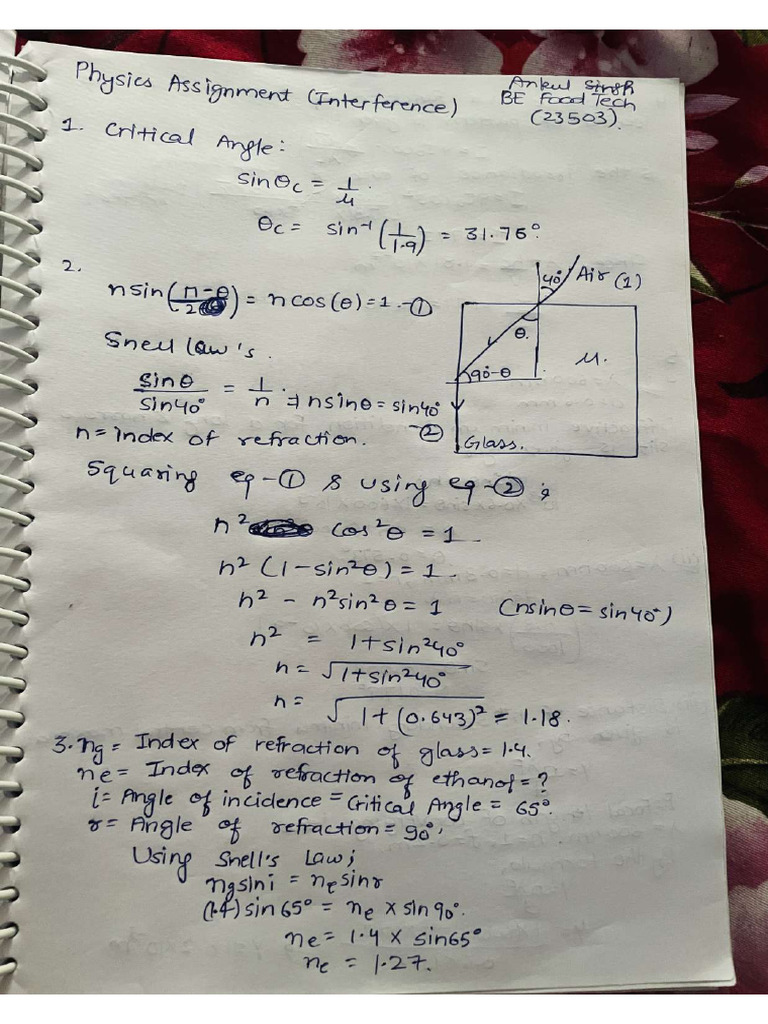 Physics Assignment (Interference)
Ankul Singh
BE Food Tech
(23503).
1. Critical Angle:
sinθc = 1/μ.
θc = sin⁻¹(1/1.9) = 31.76°.
2.
n sin(π-θ/2) = n cos(θ) = 1. -①
Snell law's.
sinθ/sin40° = 1/n. ⇒ n sinθ = sin40° -②
n = index of refraction.
40° Air (1)
θ.
μ.
90-θ
Glass.
Squaring eq-① & using eq-②;
n² cos²θ = 1
n² (1-sin²θ) = 1.
n² - n²sin²θ = 1 (nsinθ = sin40°)
n² = 1+sin²40°
n = √1+sin²40°
n = √1+(0.643)² = 1.18.
3. ng = Index of refraction of glass = 1.4.
ne = Index of refraction of ethanol = ?
i = Angle of incidence = Critical Angle = 65°.
r = Angle of refraction = 90°.
Using Snell's Law;
ng sin i = ne sin r
(1.4) sin 65° = ne × sin 90°.
ne = 1.4 × sin65°
ne = 1.27.